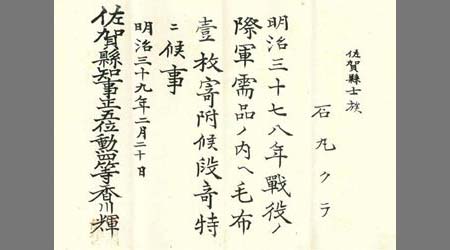 佐賀縣士族
石丸クラ
明治三十七八年戰役ノ
際軍需品ノ内ヘ毛布
壹枚寄附候段奇特
ニ候事
明治三十九年二月二十日
佐賀縣知事正五位勳四等香川輝